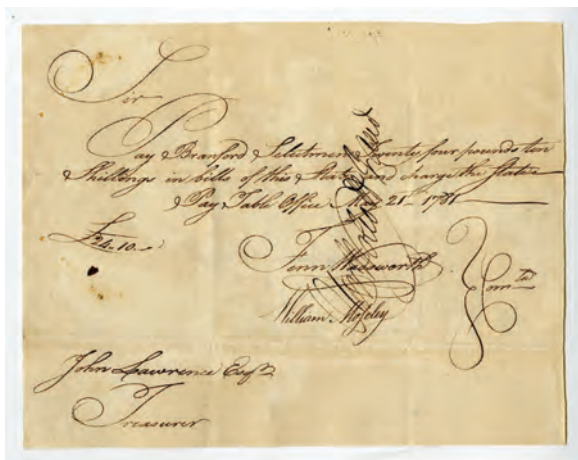 Sir
Pay Branford Selectmen Twenty four pounds ten
Shillings in bills of this State and charge the State
Pay Table Office May 21st 1781
£24-10-
Fenn Wadsworth
William Moseley
Comtee
John Lawrence Esqr
Treasurer